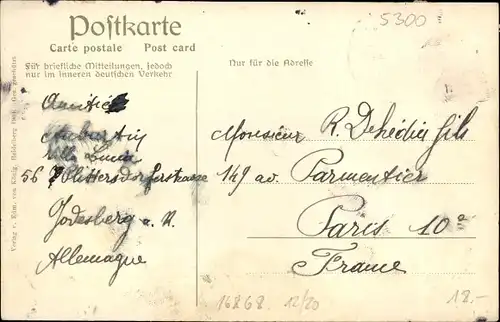 Postkarte
Carte postale Post card
5300
Für briefliche Mitteilungen, jedoch
nur im inneren deutschen Verkehr
Nur für die Adresse
Amitié
Villa
56 Plittersdorferstrasse
Godesberg a. R.
Allemagne
Monsieur R. Dehédin fils
149 av. Parmentier
Paris 10e
France
16868 12/20
18.-